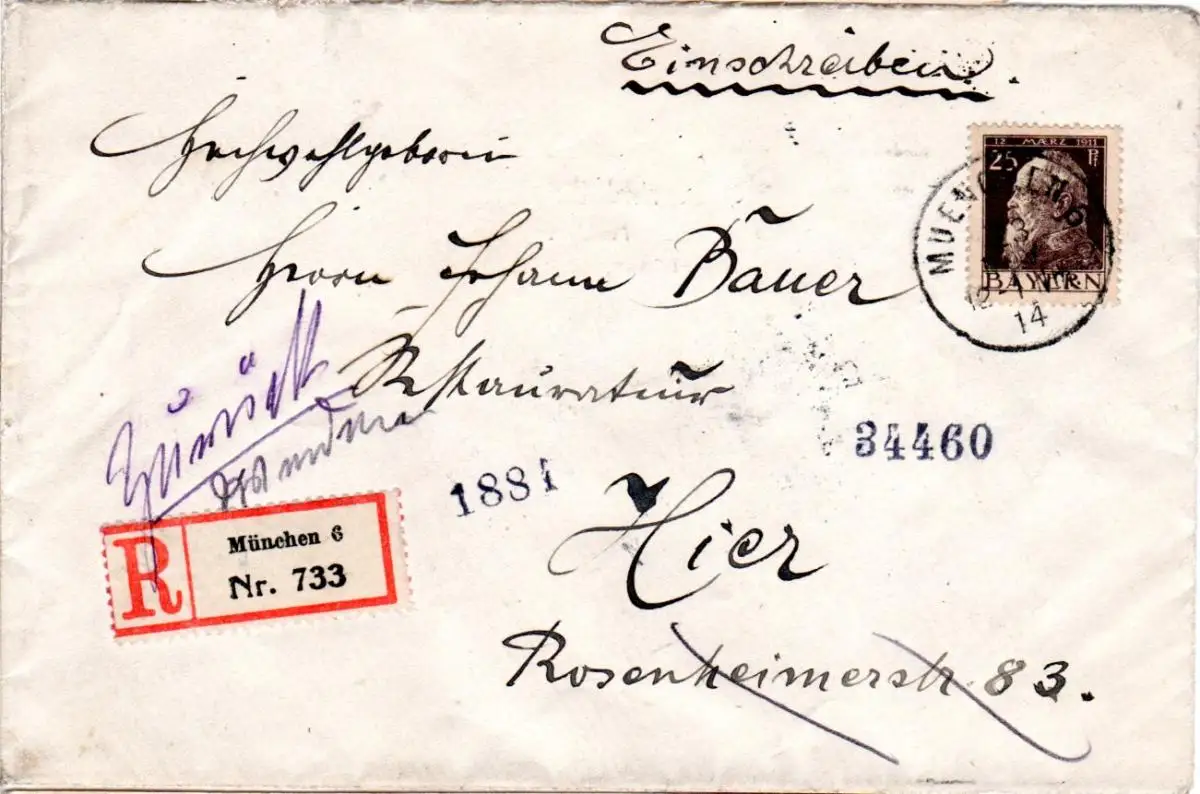 Einschreiben.
12 MÆRZ 1911
25 Pf
BAYERN
MUENCHEN 6
14
Hochwohlgeboren
Herrn Johann Bauer
Restaurateur
Zurück
34460
1884
Hier
R
München 6
Nr. 733
Rosenheimerstr. 83.